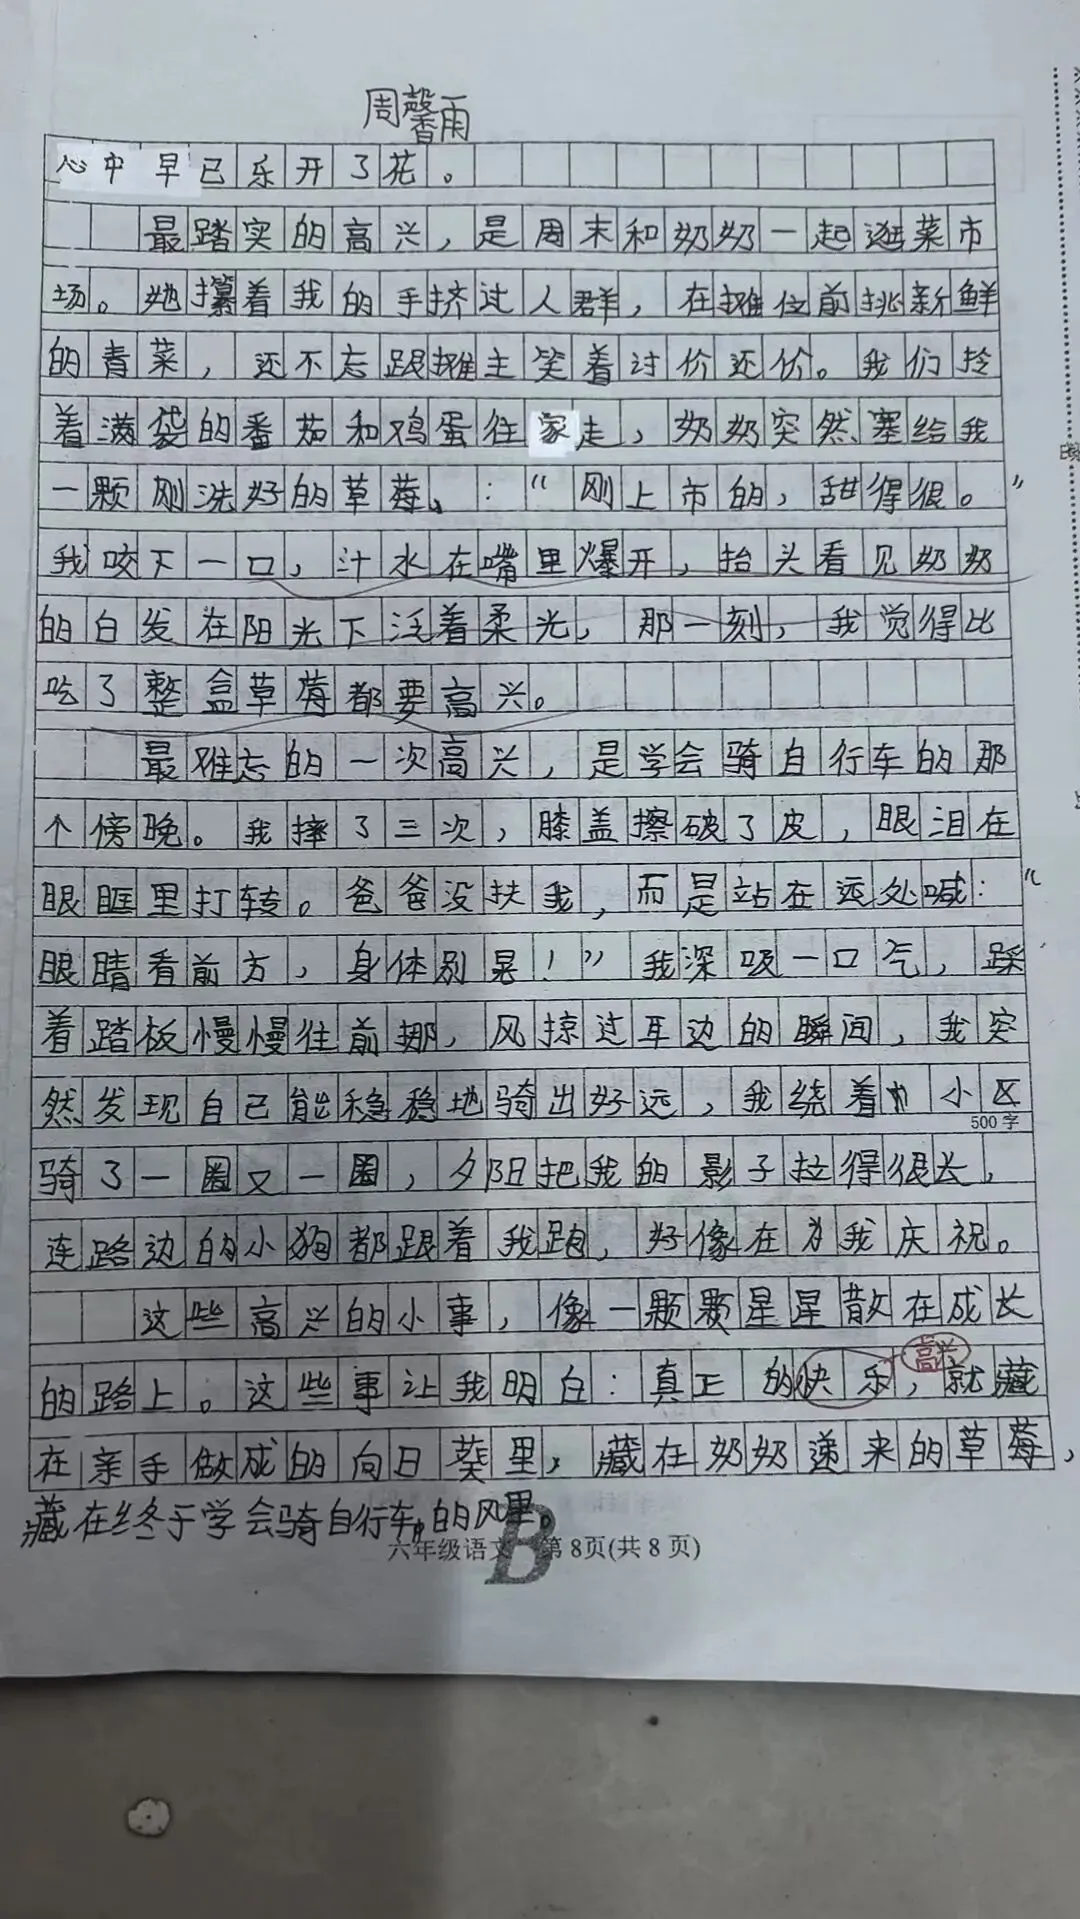 周馨雨
心中早已乐开了花。
最踏实的高兴，是周末和奶奶一起逛菜市
场。她攥着我的手挤过人群，在摊位前挑新鲜
的青菜，还不忘跟摊主笑着讨价还价。我们拎
着满袋的番茄和鸡蛋往家走，奶奶突然塞给我
一颗刚洗好的草莓、：“刚上市的，甜得很。”
我咬下一口，汁水在嘴里爆开，抬头看见奶奶
的白发在阳光下泛着柔光，那一刻，我觉得比
吃了整盒草莓都要高兴。
最难忘的一次高兴，是学会骑自行车的那
个傍晚。我摔了三次，膝盖擦破了皮，眼泪在
眼眶里打转。爸爸没扶我，而是站在远处喊：“
眼睛看前方，身体别晃！”我深吸一口气，踩
着踏板慢慢往前挪，风掠过耳边的瞬间，我突
然发现自己能稳稳地骑出好远，我绕着小区
500字
骑了一圈又一圈，夕阳把我的影子拉得很长，
连路边的小狗都跟着我跑，好像在为我庆祝。
这些高兴的小事，像一颗颗星星散在成长
高兴
的路上。这些事让我明白：真正的快乐，就藏
在亲手做成的向日葵里，藏在奶奶递来的草莓，
藏在终于学会骑自行车的风里。
六年级语文 B 第8页(共8页)